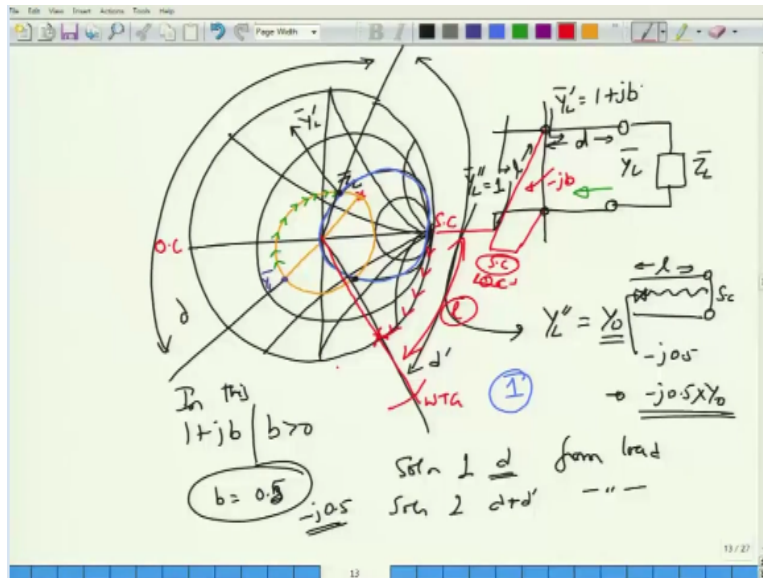 File Edit View Insert Actions Tools Help
Page Width
B I
Y̅L' = 1+jb
Y̅L'
Z̅L
d
l
Y̅L
Z̅L
Y̅L'' = 1
-jb
S.C
O.C
Y̅L
S.C
d
l
l
YL'' = Y0
Sc
-j0.5
d'
WTG
1
-j0.5×Y0
In this
1+jb | b>0
b = 0.5
-j0.5
Soln 1 d from load
Soln 2 d+d' -"-
13 / 27
13